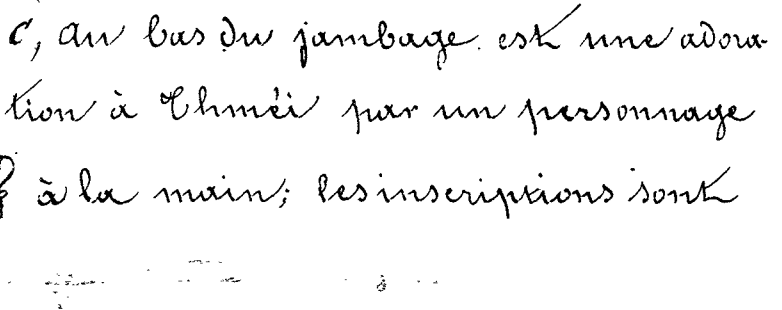 C, au bas du jambage est une adora-
tion à Thméi par un personnage
à la main; les inscriptions sont